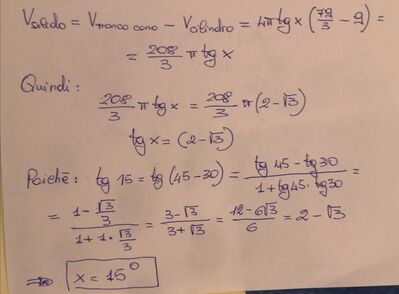 Vsolido = Vtronco cono − Vcilindro = 4π tg x (79/3 − 9) =
= 208/3 π tg x
Quindi:
208/3 π tg x = 208/3 π (2−√3)
tg x = (2−√3)
Poiché: tg 15 = tg (45−30) = (tg 45 − tg 30)/(1 + tg 45 · tg 30) =
= (1 − √3/3)/(1 + 1 · √3/3) = (3−√3)/(3+√3) = (12−6√3)/6 = 2−√3
⇒ x = 15°